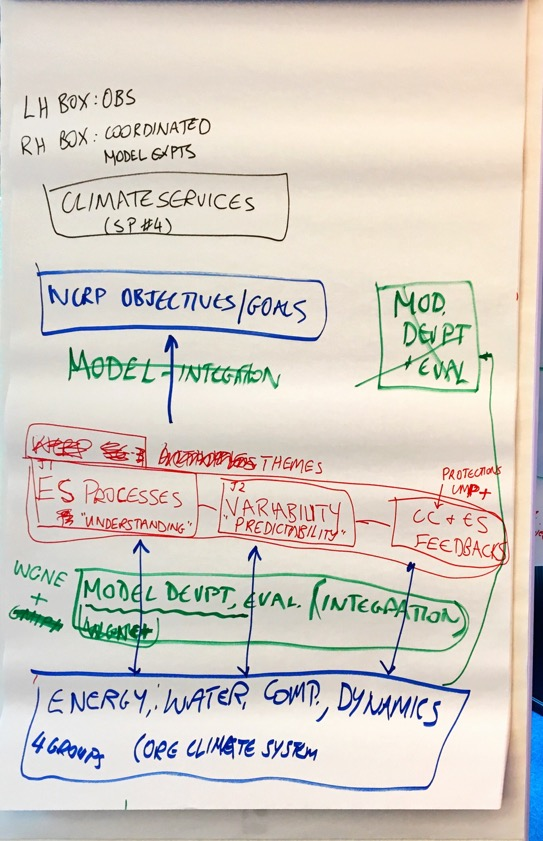 LH BOX: OBS
RH BOX: COORDINATED
MODEL EXPTS
CLIMATE SERVICES
(SP #4)
WCRP OBJECTIVES/GOALS
MOD.
DEVPT
+ EVAL
MODEL INTEGRATION
THEMES
J1
ES PROCESSES
"UNDERSTANDING"
J2
VARIABILITY
"PREDICTABILITY"
CC + ES
FEEDBACKS
WGNE
+
MODEL DEVPT, EVAL. (INTEGRATION)
ENERGY, WATER, COMP., DYNAMICS
4 GROUPS CORE CLIMATE SYSTEM